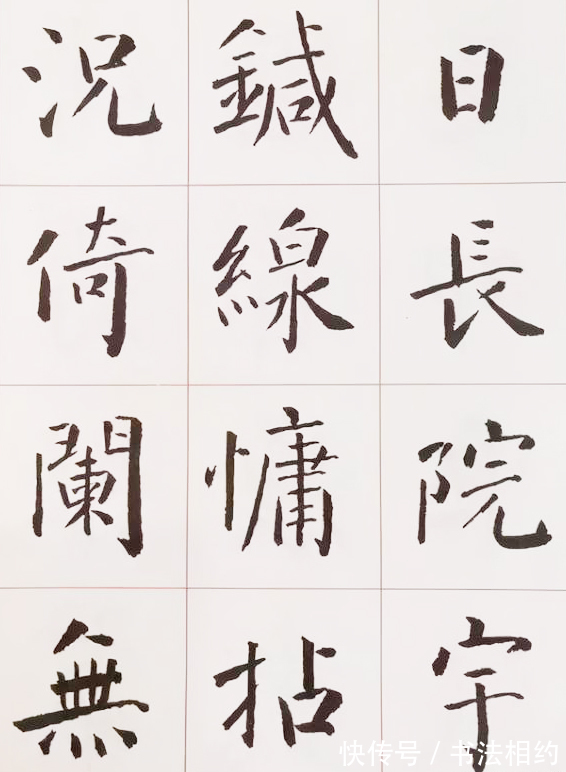 日長院宇
鍼線慵拈
況倚闌無
快传号 / 书法相约